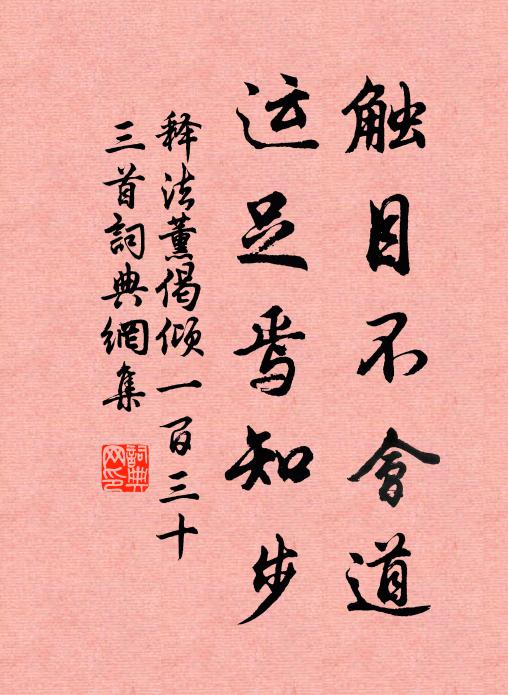 触目不會道
运足焉知步
释法薰偈倾一百三十
三首詞典網集
詞典
网印